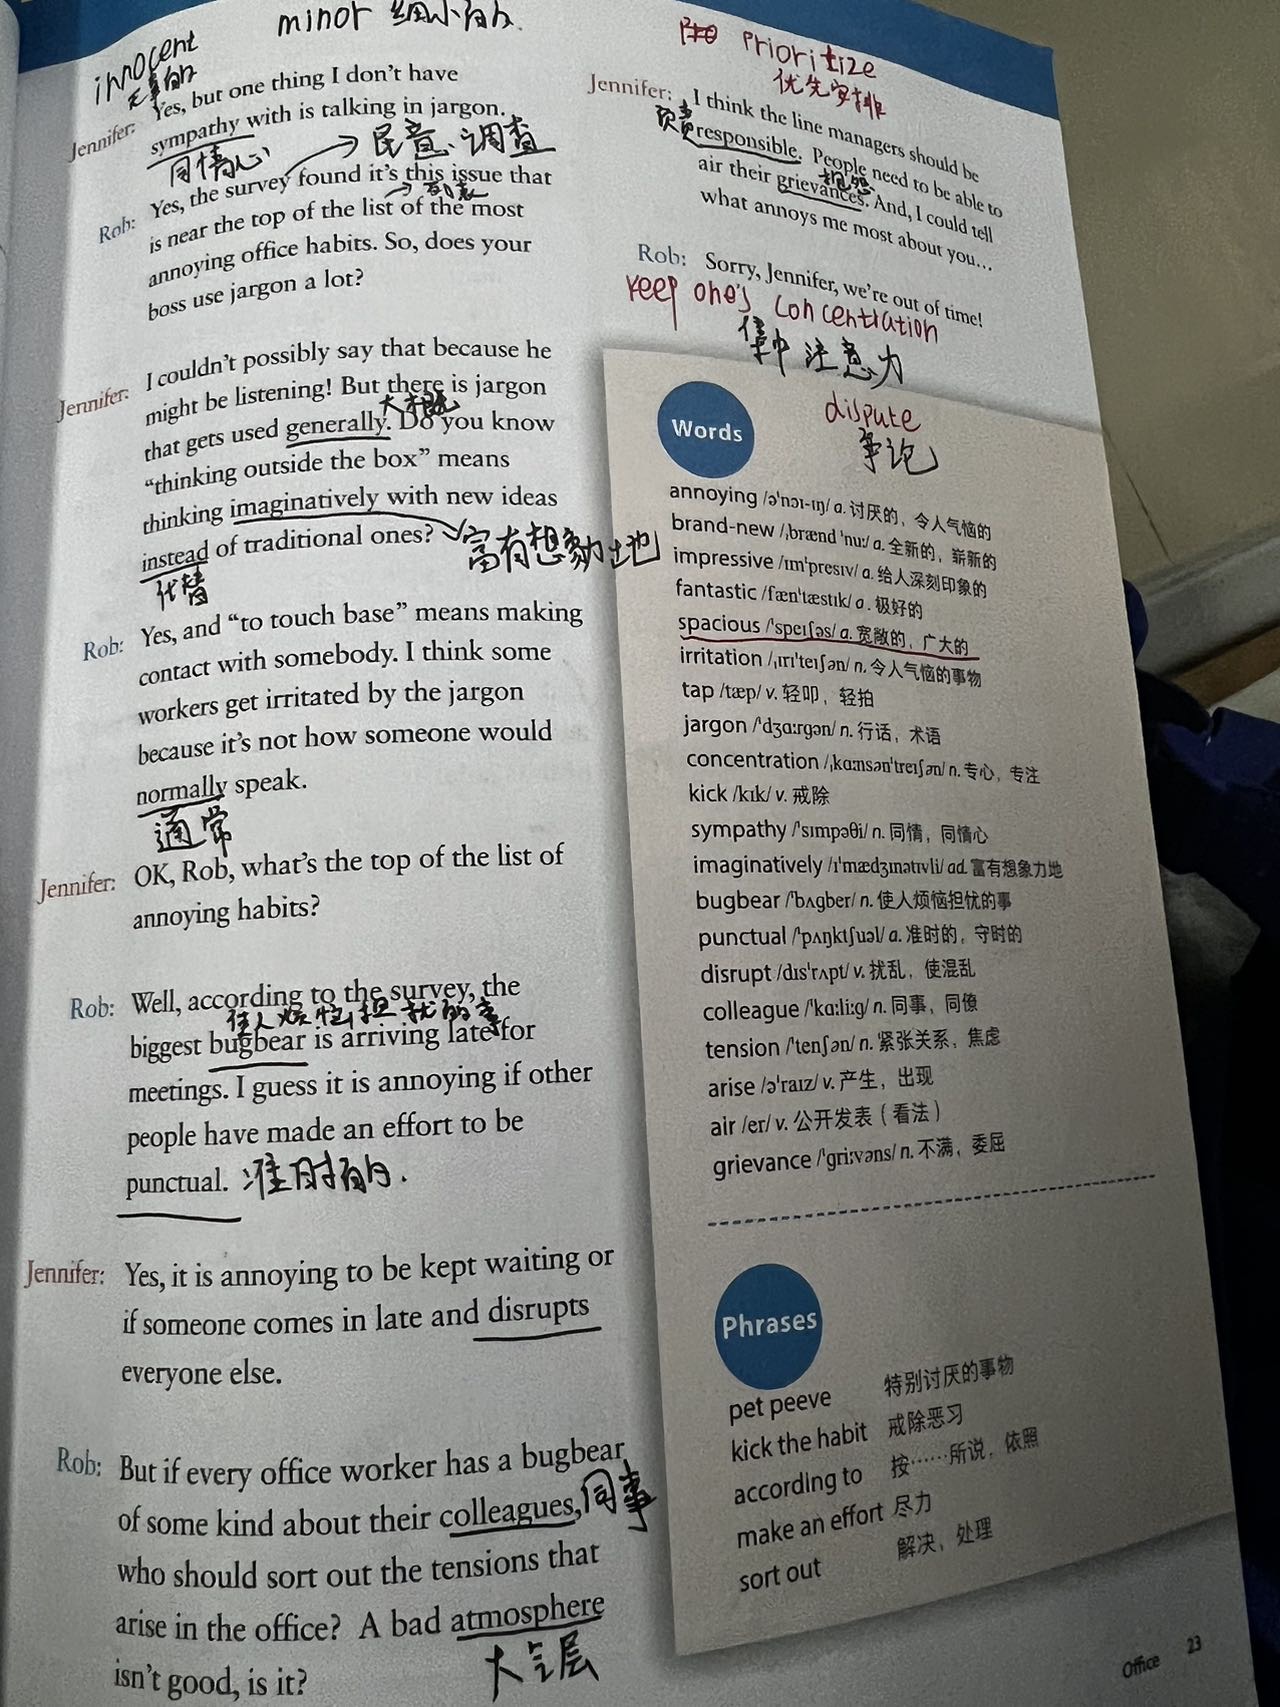 minor 细小的
innocent
无辜的
Jennifer: Yes, but one thing I don't have
sympathy with is talking in jargon.
同情心
民意、调查
Rob: Yes, the survey found it's this issue that
列表
is near the top of the list of the most
annoying office habits. So, does your
boss use jargon a lot?
Jennifer: I couldn't possibly say that because he
might be listening! But there is jargon
大概
that gets used generally. Do you know
"thinking outside the box" means
thinking imaginatively with new ideas
instead of traditional ones?
富有想象力地
代替
Rob: Yes, and "to touch base" means making
contact with somebody. I think some
workers get irritated by the jargon
because it's not how someone would
normally speak.
通常
Jennifer: OK, Rob, what's the top of the list of
annoying habits?
Rob: Well, according to the survey, the
使人烦恼担忧的事
biggest bugbear is arriving late for
meetings. I guess it is annoying if other
people have made an effort to be
punctual. 准时的.
Jennifer: Yes, it is annoying to be kept waiting or
if someone comes in late and disrupts
everyone else.
Rob: But if every office worker has a bugbear
of some kind about their colleagues, 同事
who should sort out the tensions that
arise in the office? A bad atmosphere
大气层
isn't good, is it?
Prioritize
优先安排
Jennifer: I think the line managers should be
负责
responsible. People need to be able to
抱怨
air their grievances. And, I could tell
what annoys me most about you...
Rob: Sorry, Jennifer, we're out of time!
keep one's concentration
集中注意力
dispute
争论
Words
annoying /ə'nɔɪ-ɪŋ/ a. 讨厌的，令人气恼的
brand-new /ˌbrænd 'nuː/ a. 全新的，崭新的
impressive /ɪm'presɪv/ a. 给人深刻印象的
fantastic /fæn'tæstɪk/ a. 极好的
spacious /'speɪʃəs/ a. 宽敞的，广大的
irritation /ˌɪrɪ'teɪʃən/ n. 令人气恼的事物
tap /tæp/ v. 轻叩，轻拍
jargon /'dʒɑːrgən/ n. 行话，术语
concentration /ˌkɑːnsən'treɪʃən/ n. 专心，专注
kick /kɪk/ v. 戒除
sympathy /'sɪmpəθi/ n. 同情，同情心
imaginatively /ɪ'mædʒɪnətɪvli/ ad. 富有想象力地
bugbear /'bʌgber/ n. 使人烦恼担忧的事
punctual /'pʌŋktʃuəl/ a. 准时的，守时的
disrupt /dɪs'rʌpt/ v. 扰乱，使混乱
colleague /'kɑːliːg/ n. 同事，同僚
tension /'tenʃən/ n. 紧张关系，焦虑
arise /ə'raɪz/ v. 产生，出现
air /er/ v. 公开发表（看法）
grievance /'griːvəns/ n. 不满，委屈
Phrases
pet peeve 特别讨厌的事物
kick the habit 戒除恶习
according to 按……所说，依照
make an effort 尽力
sort out 解决，处理
Office 23